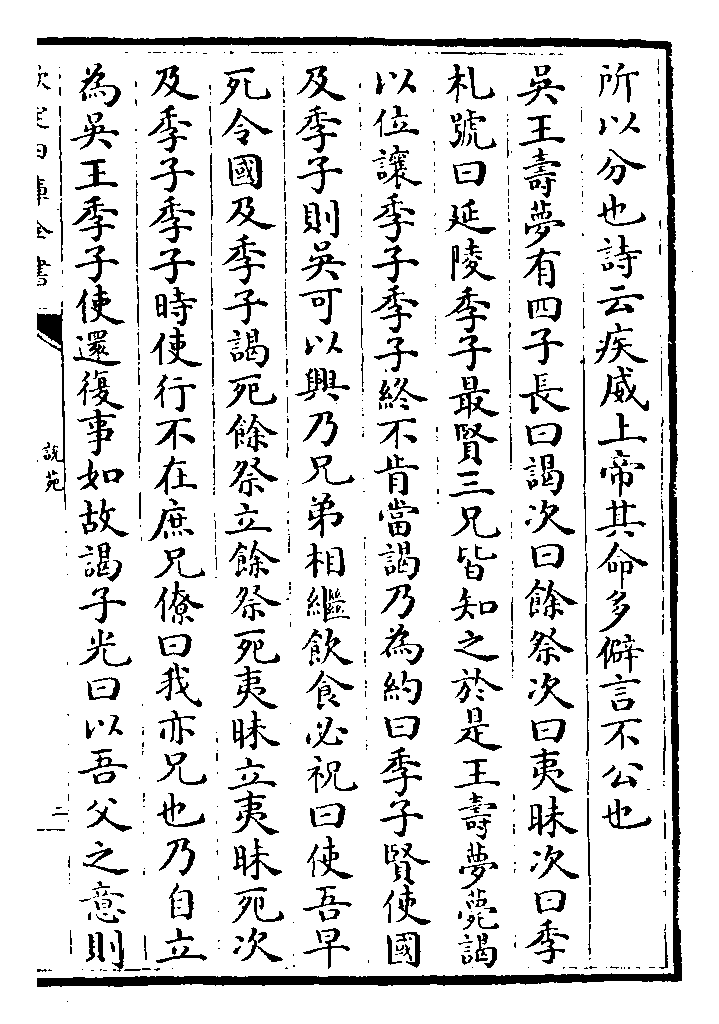 所以分也詩云疾威上帝其命多僻言不公也
吳王壽夢有四子長曰謁次曰餘祭次曰夷昧次曰季
札號曰延陵季子最賢三兄皆知之於是王壽夢薨謁
以位讓季子季子終不肯當謁乃為約曰季子賢使國
及季子則吳可以興乃兄弟相繼飲食必祝曰使吾早
死令國及季子謁死餘祭立餘祭死夷昧立夷昧死次
及季子季子時使行不在庶兄僚曰我亦兄也乃自立
為吳王季子使還復事如故謁子光曰以吾父之意則
欽定四庫全書
說苑
二